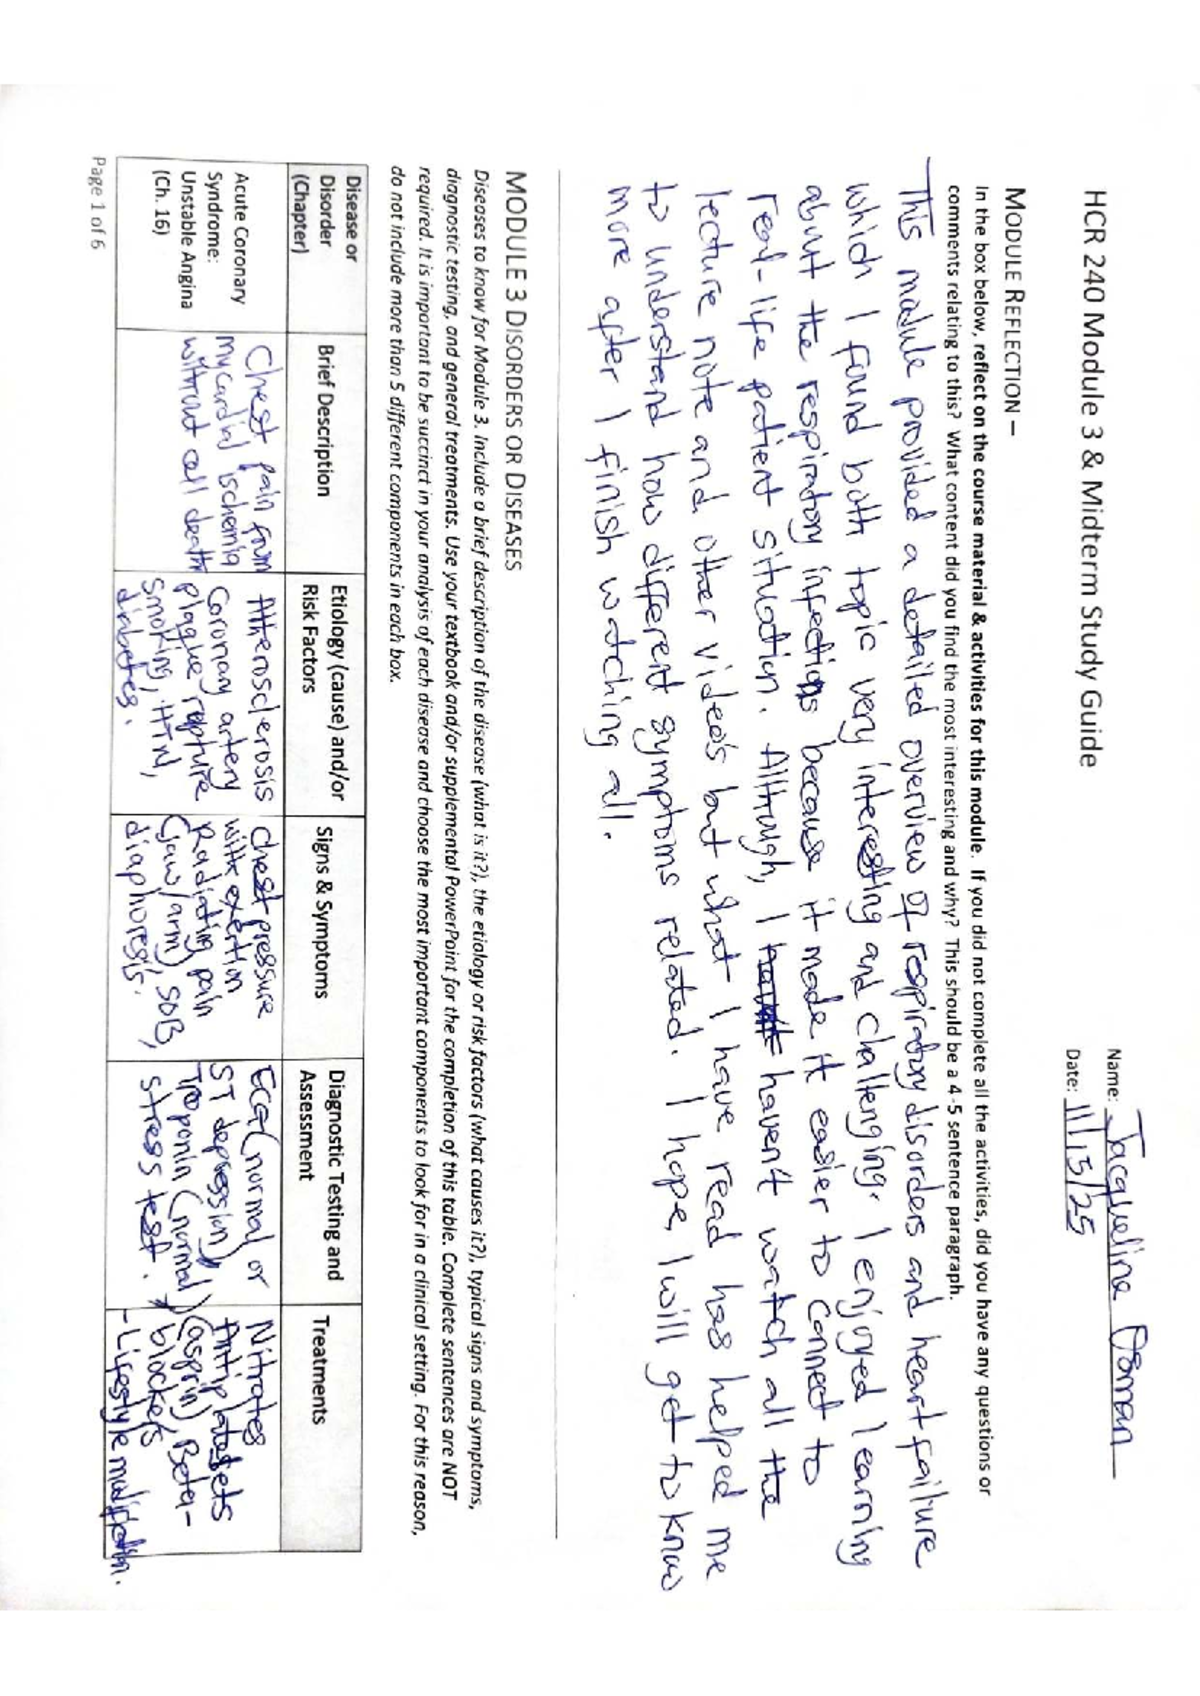 HCR 240 Module 3 & Midterm Study Guide
Name: Jacqueline Osman
Date: 11/13/25
MODULE REFLECTION –
In the box below, reflect on the course material & activities for this module. If you did not complete all the activities, did you have any questions or
comments relating to this? What content did you find the most interesting and why? This should be a 4 -5 sentence paragraph.
This module provided a detailed overview of respiratory disorders and heart failure
which I found both topic very interesting and challenging. I enjoyed learning
about the respiratory infections because it made it easier to connect to
real-life patient situation. Although, I haven't watch all the
lecture note and other video's but what I have read has helped me
to understand how different symptoms related. I hope, I will get to know
more after I finish watching all.
MODULE 3 DISORDERS OR DISEASES
Diseases to know for Module 3. Include a brief description of the disease (what is it?), the etiology or risk factors (what causes it?), typical signs and symptoms,
diagnostic testing, and general treatments. Use your textbook and/or supplemental PowerPoint for the completion of this table. Complete sentences are NOT
required. It is important to be succinct in your analysis of each disease and choose the most important components to look for in a clinical setting. For this reason,
do not include more than 5 different components in each box.
Disease or
Disorder
(Chapter)
Brief Description
Etiology (cause) and/or
Risk Factors
Signs & Symptoms
Diagnostic Testing and
Assessment
Treatments
Acute Coronary
Syndrome:
Unstable Angina
(Ch. 16)
Chest pain from
myocardial ischemia
without cell death
Atherosclerosis
Coronary artery
plaque rupture
smoking, HTN,
diabetes.
chest pressure
with exertion
Radiating pain
(jaw/arm), SOB,
diaphoresis.
ECG (normal or
ST depression),
Troponin (normal)
stress test.
Nitrates
Antiplatelets
(asprin) Beta-
blockers
-Lifestyle modification.
Page 1 of 6